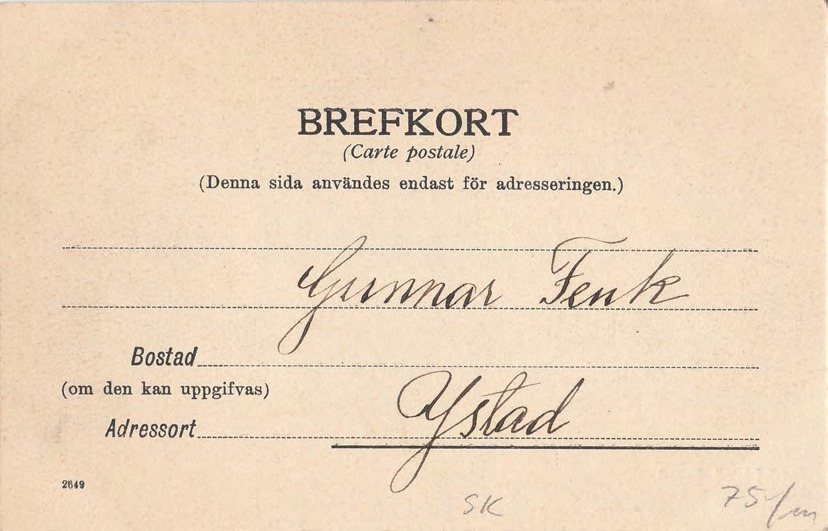 BREFKORT
(Carte postale)
(Denna sida användes endast för adresseringen.)
Gunnar Fenk
Bostad
(om den kan uppgifvas)
Adressort Ystad
2649
SK 75/m